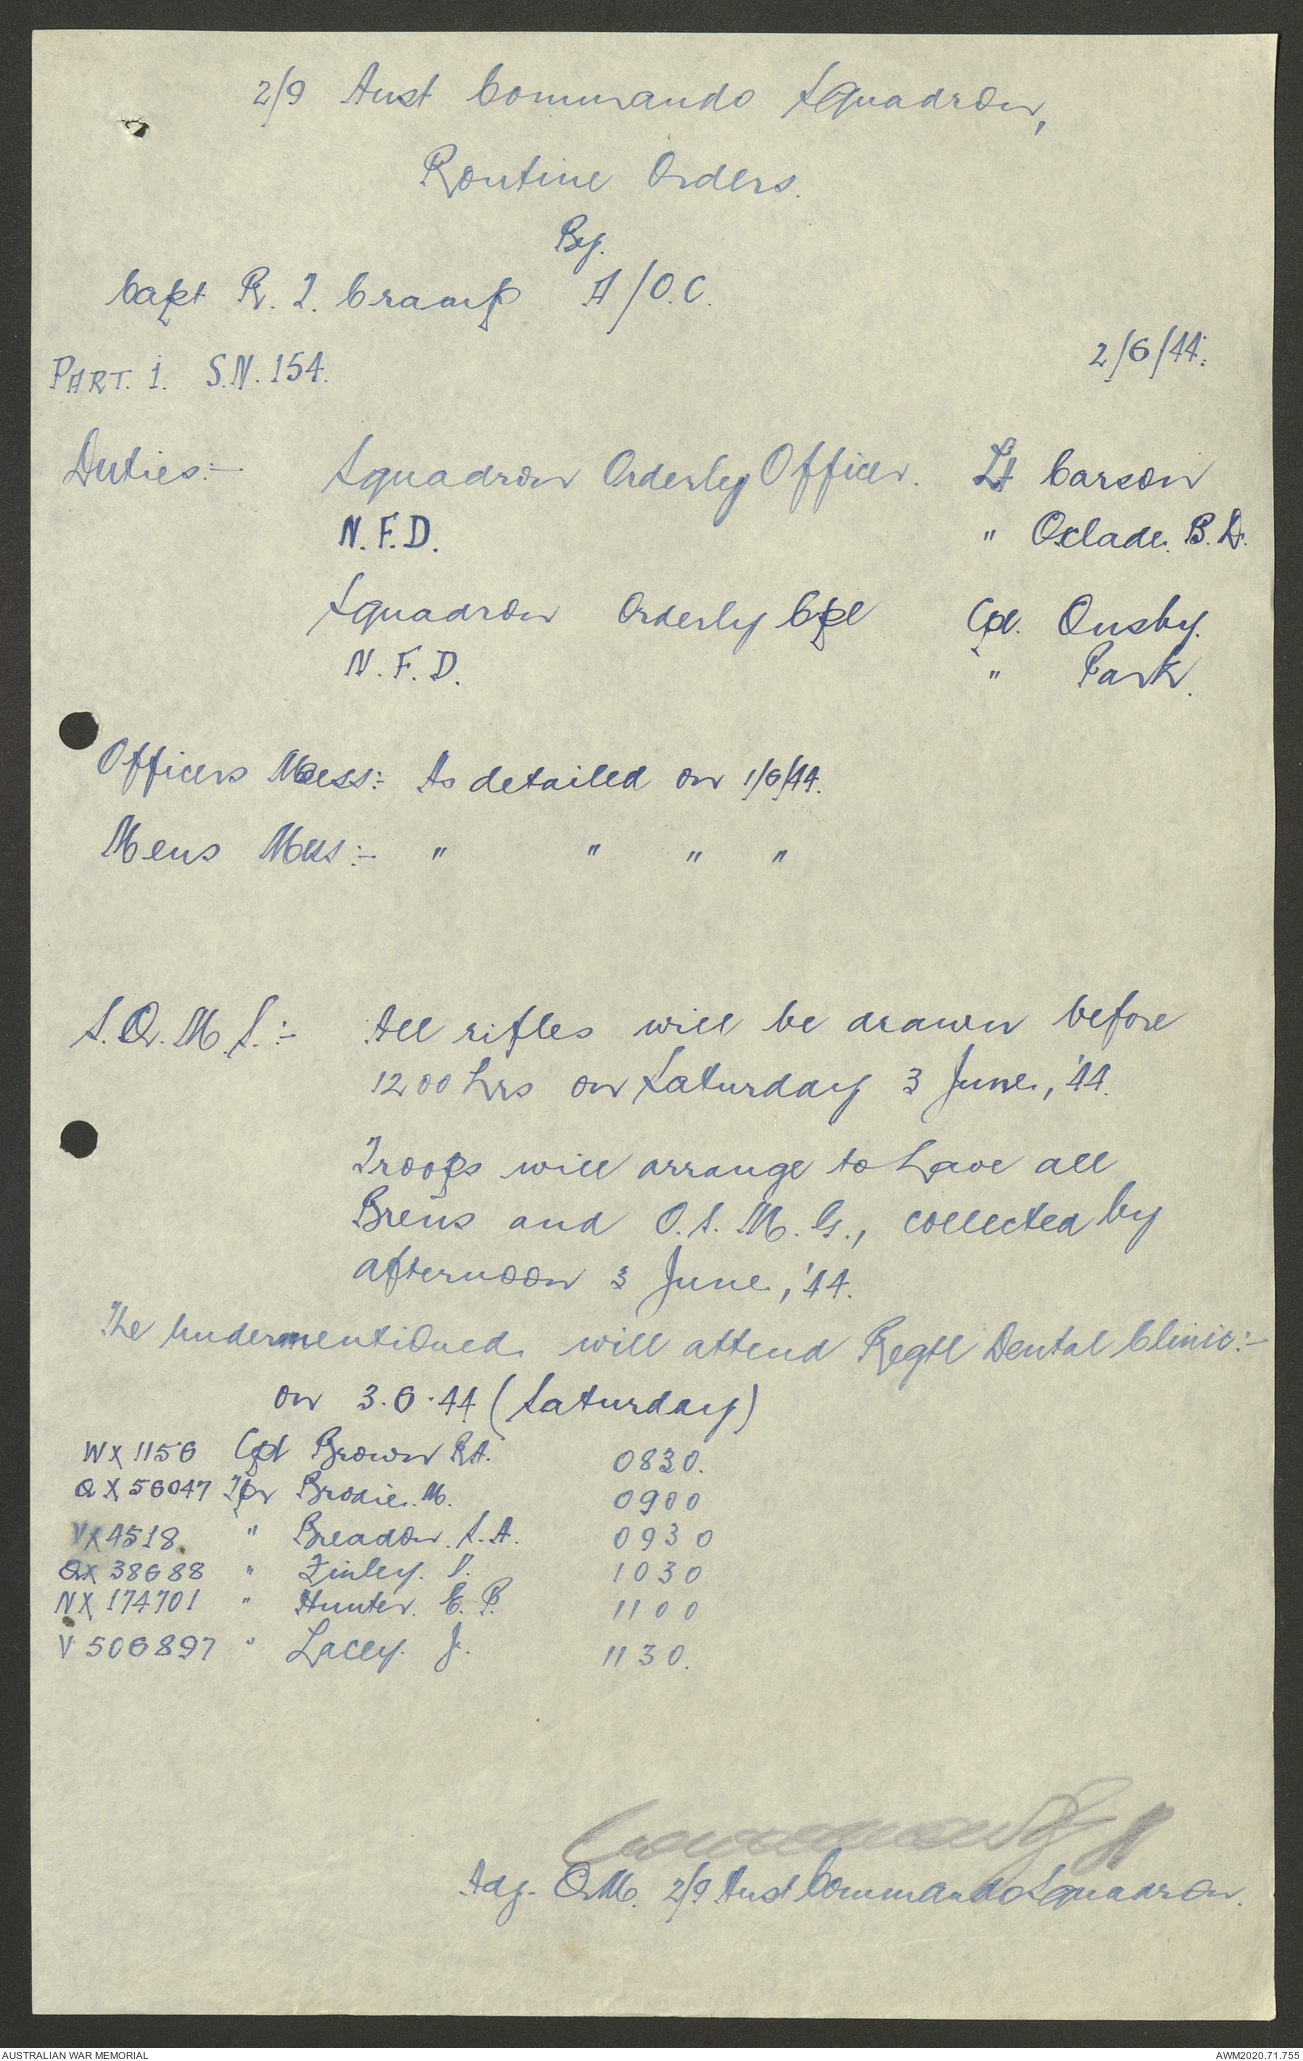 2/9 Aust Commando Squadron,
Routine Orders.
By.
Capt R. T. Cramp A/O.C.
PART. 1. S.N. 154. 2/6/44:
Duties:- Squadron Orderly Officer. Lt Carson
N.F.D. " Oxlade. B.D.
Squadron Orderly Cpl Cpl. Ousby.
N.F.D. " Park.
Officers Mess:- As detailed on 1/6/44.
Mens Mess:- " " " "
S.Q.M.S.:- All rifles will be drawn before
1200 hrs on Saturday 3 June, '44.
Troops will arrange to have all
Brens and O.S.M.G., collected by
afternoon 3 June, '44.
The undermentioned will attend Regtl Dental Clinic:-
on 3.6.44 (Saturday)
WX 1156 Cpl Brown R.A. 0830.
QX 56047 Tpr Brodie. M. 0900
VX 4518. " Breadon. S.A. 0930
QX 38688 " Finley. V. 1030
NX 174701 " Hunter. E. P. 1100
V 506897 " Lacey. J. 1130.
Adj. QM. 2/9 Aust Commando Squadron.
AUSTRALIAN WAR MEMORIAL AWM2020.71.755